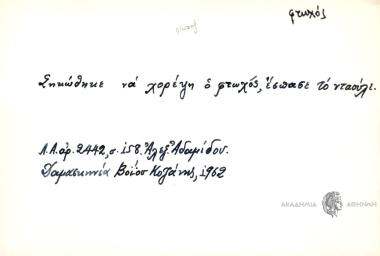 φτωχός
Σηκώθηκε νά χορέψη ὁ φτωχός, ἔσπασε τό νταούλι.
Λ.Α. ἀρ. 2442, σ. 158. Ἀλεξ. Ἀδαμίδου.
Δαμασκηνία Βοΐου Κοζάνης, 1962
ΑΚΑΔΗΜΙΑ ΑΘΗΝΩΝ